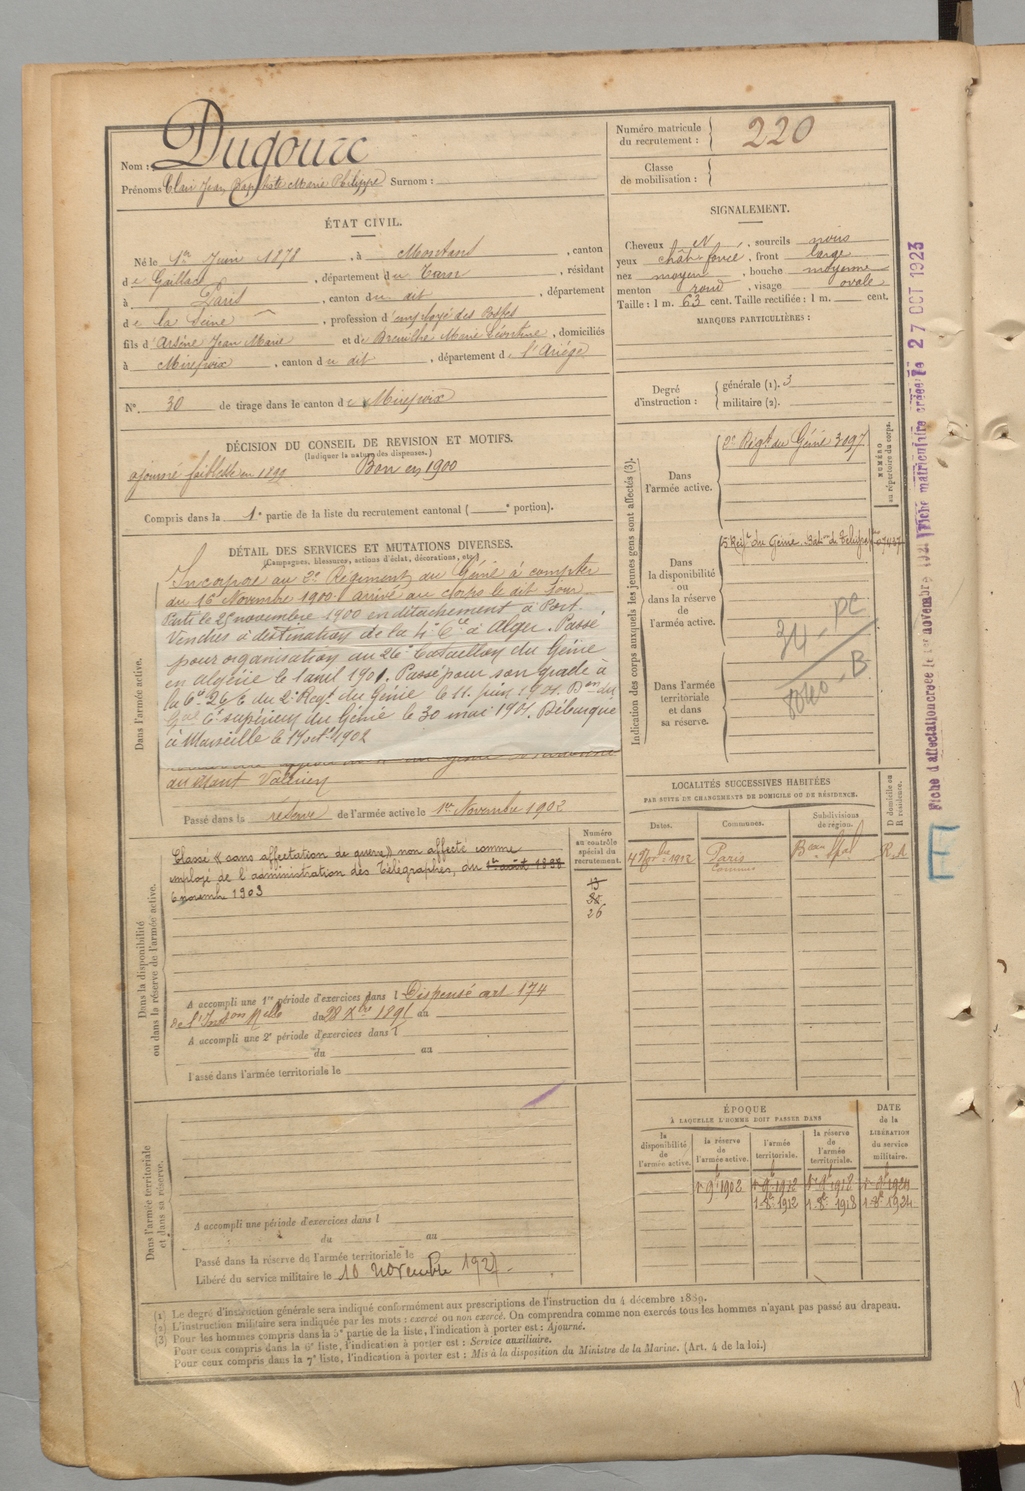 Nom : Dugourc
Prénoms Clair Jean Baptiste Marie Philippe Surnom :
Numéro matricule du recrutement : 220
Classe de mobilisation :
ÉTAT CIVIL.
Né le 1er Juin 1878, à Montans, canton
de Gaillac, département du Tarn, résidant
à Paris, canton du dit, département
de la Seine, profession d'employé des Postes
fils d'Arsène Jean Marie et de Marie Léontine, domiciliés
à Mirepoix, canton du dit, département de l'Ariège
N° 30 de tirage dans le canton de Mirepoix
SIGNALEMENT.
Cheveux N, sourcils noirs
yeux chât foncé, front large
nez moyen, bouche moyenne
menton rond, visage ovale
Taille : 1 m. 63 cent. Taille rectifiée : 1 m. cent.
MARQUES PARTICULIÈRES :
Degré d'instruction : générale (1). 3
militaire (2).
DÉCISION DU CONSEIL DE REVISION ET MOTIFS.
(Indiquer la nature des dispenses.)
ajourné faiblesse en 1899 Bon en 1900
Compris dans la 1e partie de la liste du recrutement cantonal ( e portion).
DÉTAIL DES SERVICES ET MUTATIONS DIVERSES.
(Campagnes, blessures, actions d'éclat, décorations, etc.)
Dans l'armée active.
Incorporé au 2e Régiment du Génie à compter
du 16 Novembre 1900. arrivé au corps le dit jour
Parti le 25 novembre 1900 en détachement à Port
Vendres à destination de la 4e Cie à Alger. Passé
pour organisation au 26e Bataillon du Génie
en Algérie le 1 avril 1901. Passé pour son grade à
la Cie 26/6 du 2e Regt du Génie le 11 juin 1901.
Cl supérieur du Génie le 30 mai 1901. Débarqué
à Marseille le 17 octe 1902
au Mont Valérien
Passé dans la réserve de l'armée active le 1er Novembre 1902
Indication des corps auxquels les jeunes gens sont affectés (3).
NUMÉRO au répertoire du corps.
Dans l'armée active.
2e Regt du Génie 3097
Dans la disponibilité ou dans la réserve de l'armée active.
5 Regt du Génie
Dans l'armée territoriale et dans sa réserve.
8040 - B
Fiche d'affectation créée le 1er novembre
Fiche matriculaire créée le 27 OCT 1923
E
LOCALITÉS SUCCESSIVES HABITÉES
PAR SUITE DE CHANGEMENTS DE DOMICILE OU DE RÉSIDENCE.
Dates. Communes. Subdivisions de région. D domicile ou R résidence.
4 9bre 1912 Paris R.A
Dans la disponibilité ou dans la réserve de l'armée active.
Numéro au contrôle spécial du recrutement.
Classé « sans affectation de guerre » non affecté comme
employé de l'administration des Télégraphes, du 1er août 1898
6 novembre 1903
26
A accompli une 1re période d'exercices dans l Dispensé art. 174
de l'Inston Melle du 28 Xbre 1895 au
A accompli une 2e période d'exercices dans l
du au
Passé dans l'armée territoriale le
Dans l'armée territoriale et dans sa réserve.
A accompli une période d'exercices dans l
du au
Passé dans la réserve de l'armée territoriale le
Libéré du service militaire le 10 novembre 1927
ÉPOQUE
À LAQUELLE L'HOMME DOIT PASSER DANS
DATE de la LIBÉRATION du service militaire.
la disponibilité de l'armée active. la réserve de l'armée active. l'armée territoriale. la réserve de l'armée territoriale.
1r 9b 1902 1r 9b 1912 1r 9b 1918 1r 9b 1924
1 8b 1912 1 8b 1918 1 8b 1924
(1) Le degré d'instruction générale sera indiqué conformément aux prescriptions de l'instruction du 4 décembre 1889.
(2) L'instruction militaire sera indiquée par les mots : exercé ou non exercé. On comprendra comme non exercés tous les hommes n'ayant pas passé au drapeau.
(3) Pour les hommes compris dans la 5e partie de la liste, l'indication à porter est : Ajourné.
Pour ceux compris dans la 6e liste, l'indication à porter est : Service auxiliaire.
Pour ceux compris dans la 7e liste, l'indication à porter est : Mis à la disposition du Ministre de la Marine. (Art. 4 de la loi.)